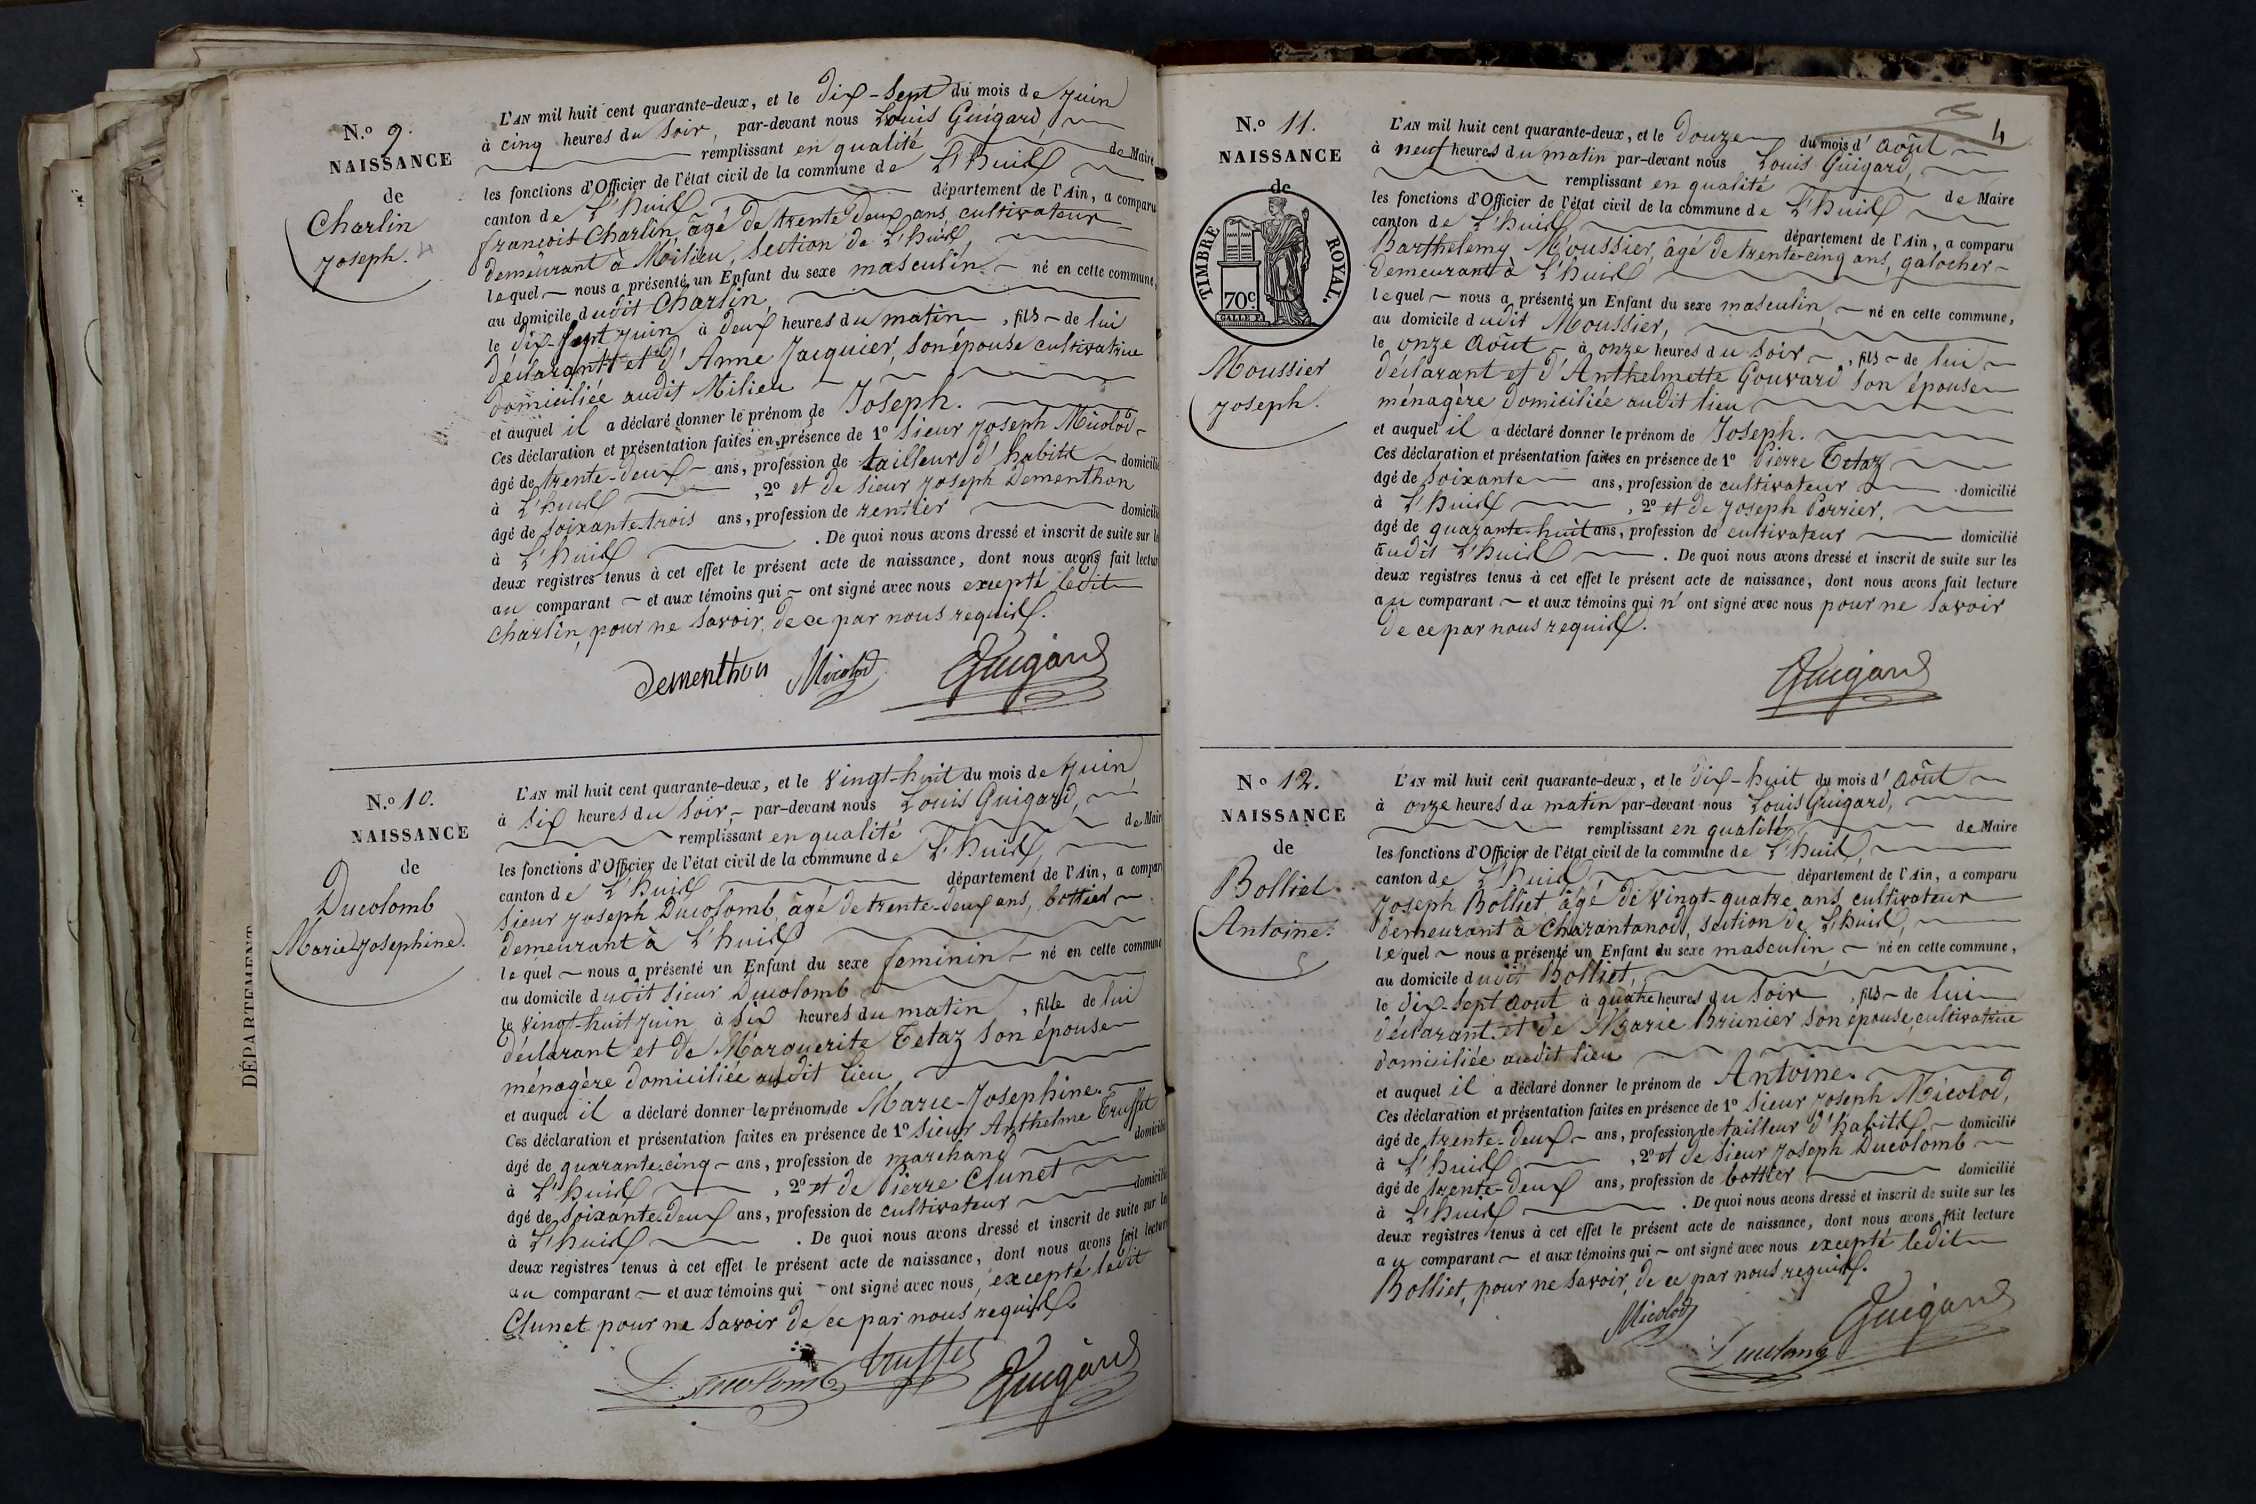 N.o 9.
NAISSANCE
de
Charlin
Joseph.
L'AN mil huit cent quarante-deux, et le dix-sept du mois de Juin
à cinq heures du soir, par-devant nous Louis Guigard,
remplissant en qualité de Maire
les fonctions d'Officier de l'état civil de la commune de L'huis
canton de L'huis département de l'Ain, a comparu
françois Charlin, âgé de trente deux ans, cultivateur
demeurant à Milieu, section de L'huis,
lequel nous a présenté un Enfant du sexe masculin né en cette commune,
au domicile dudit Charlin,
le dix-sept Juin à deux heures du matin, fils de lui
déclarant et d'Anne Jacquier, son épouse cultivatrice
domiciliée audit Milieu
et auquel il a déclaré donner le prénom de Joseph.
Ces déclaration et présentation faites en présence de 1o Sieur Joseph Micolod
âgé de trente-deux ans, profession de tailleur d'habits domicilié
à L'huis, 2o et de sieur Joseph Dementhon
âgé de soixante-trois ans, profession de rentier domicilié
à L'huis. De quoi nous avons dressé et inscrit de suite sur le
deux registres tenus à cet effet le présent acte de naissance, dont nous avons fait lectur
au comparant et aux témoins qui ont signé avec nous excepté ledit
Charlin, pour ne savoir, de ce par nous requis.
Dementhon Micolod Guigard
N.o 10.
NAISSANCE
de
Ducolomb
Marie Josephine.
L'AN mil huit cent quarante-deux, et le vingt-huit du mois de Juin,
à six heures du soir, par-devant nous Louis Guigard,
remplissant en qualité de Mair
les fonctions d'Officier de l'état civil de la commune de L'huis,
canton de L'huis département de l'Ain, a compar
Sieur Joseph Ducolomb, âgé de trente-deux ans, bottier
demeurant à L'huis
lequel nous a présenté un Enfant du sexe feminin né en cette commune
au domicile dudit sieur Ducolomb
le vingt-huit Juin à six heures du matin, fille de lui
déclarant et de Marguerite Tetaz son épouse
ménagère domiciliée audit lieu
et auquel il a déclaré donner les prénoms de Marie-Josephine.
Ces déclaration et présentation faites en présence de 1o Sieur Anthelme Truffet
âgé de quarante-cinq ans, profession de marchand domicilié
à L'huis, 2o et de Pierre Clunet
âgé de soixante-deux ans, profession de cultivateur domicilié
à L'huis. De quoi nous avons dressé et inscrit de suite sur le
deux registres tenus à cet effet le présent acte de naissance, dont nous avons fait lectur
au comparant et aux témoins qui ont signé avec nous, excepté ledit
Clunet pour ne savoir de ce par nous requis.
Ducolomb truffet Guigard
DÉPARTEMENT
4
N.o 11.
NAISSANCE
de
TIMBRE ROYAL.
70c.
GALLE F.
Moussier
Joseph.
L'AN mil huit cent quarante-deux, et le douze du mois d'Août
à neuf heures du matin par-devant nous Louis Guigard,
remplissant en qualité de Maire
les fonctions d'Officier de l'état civil de la commune de L'huis
canton de L'huis, département de l'Ain, a comparu
Barthelemy Moussier, âgé de trente-cinq ans, galocher
demeurant à L'huis
lequel nous a présenté un Enfant du sexe masculin, né en cette commune,
au domicile dudit Moussier,
le onze Août à onze heures du soir, fils de lui
déclarant et d'Anthelmette Gouvard son épouse
ménagère domiciliée audit lieu
et auquel il a déclaré donner le prénom de Joseph.
Ces déclaration et présentation faites en présence de 1o Pierre Tetaz
âgé de soixante ans, profession de cultivateur domicilié
à L'huis, 2o et de Joseph Perrier,
âgé de quarante-huit ans, profession de cultivateur domicilié
audit L'huis. De quoi nous avons dressé et inscrit de suite sur les
deux registres tenus à cet effet le présent acte de naissance, dont nous avons fait lecture
au comparant et aux témoins qui n'ont signé avec nous pour ne savoir
de ce par nous requis.
Guigard
No 12.
NAISSANCE
de
Bolliet
Antoine.
L'AN mil huit cent quarante-deux, et le dix-huit du mois d'Août
à onze heures du matin par-devant nous Louis Guigard,
remplissant en qualité de Maire
les fonctions d'Officier de l'état civil de la commune de L'huis,
canton de L'huis département de l'Ain, a comparu
Joseph Bolliet âgé de vingt-quatre ans, cultivateur
demeurant à Charantonod, section de L'huis,
lequel nous a présenté un Enfant du sexe masculin, né en cette commune,
au domicile dudit Bolliet,
le dix-sept Août à quatre heures du soir, fils de lui
déclarant et de Marie Brunier son épouse, cultivatrice
domiciliée audit lieu
et auquel il a déclaré donner le prénom de Antoine.
Ces déclaration et présentation faites en présence de 1o Sieur Joseph Micolod,
âgé de trente-deux ans, profession de tailleur d'habits domicilié
à L'huis, 2o et de sieur Joseph Ducolomb
âgé de trente-deux ans, profession de bottier domicilié
à L'huis. De quoi nous avons dressé et inscrit de suite sur les
deux registres tenus à cet effet le présent acte de naissance, dont nous avons fait lecture
au comparant et aux témoins qui ont signé avec nous excepté ledit
Bolliet, pour ne savoir, de ce par nous requis.
Micolod Ducolomb Guigard